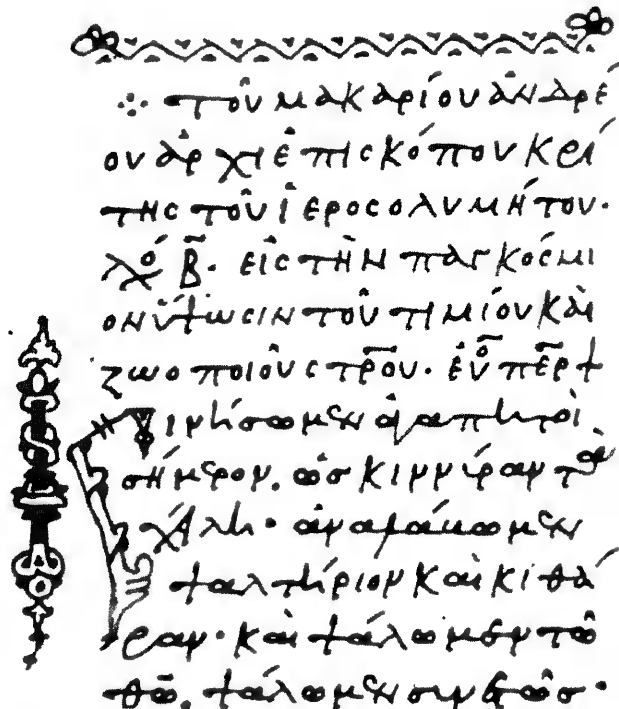 ⁘ τοῦ μακαρίου ἀνδρέ
ου ἀρχιἐπισκόπου κρί
της τοῦ ἱεροσολυμήτου·
λό β̄· εἰς τὴν παγκόσμι
ον ὕψωσιν τοῦ τιμίου καὶ
ζωοποιοῦ στρ̅ου· εὐο πε̅ρ ψ
Κινήσωμεν ἀγαπητοὶ
σήμερον, ὡσ κιννύραν τὰ
χείλη· ἀναλάβωμεν
ψαλτήριον καὶ κιθά
ραν· καὶ ψάλωμεν τῶ
θω̅, ψάλωμεν συνετῶσ·